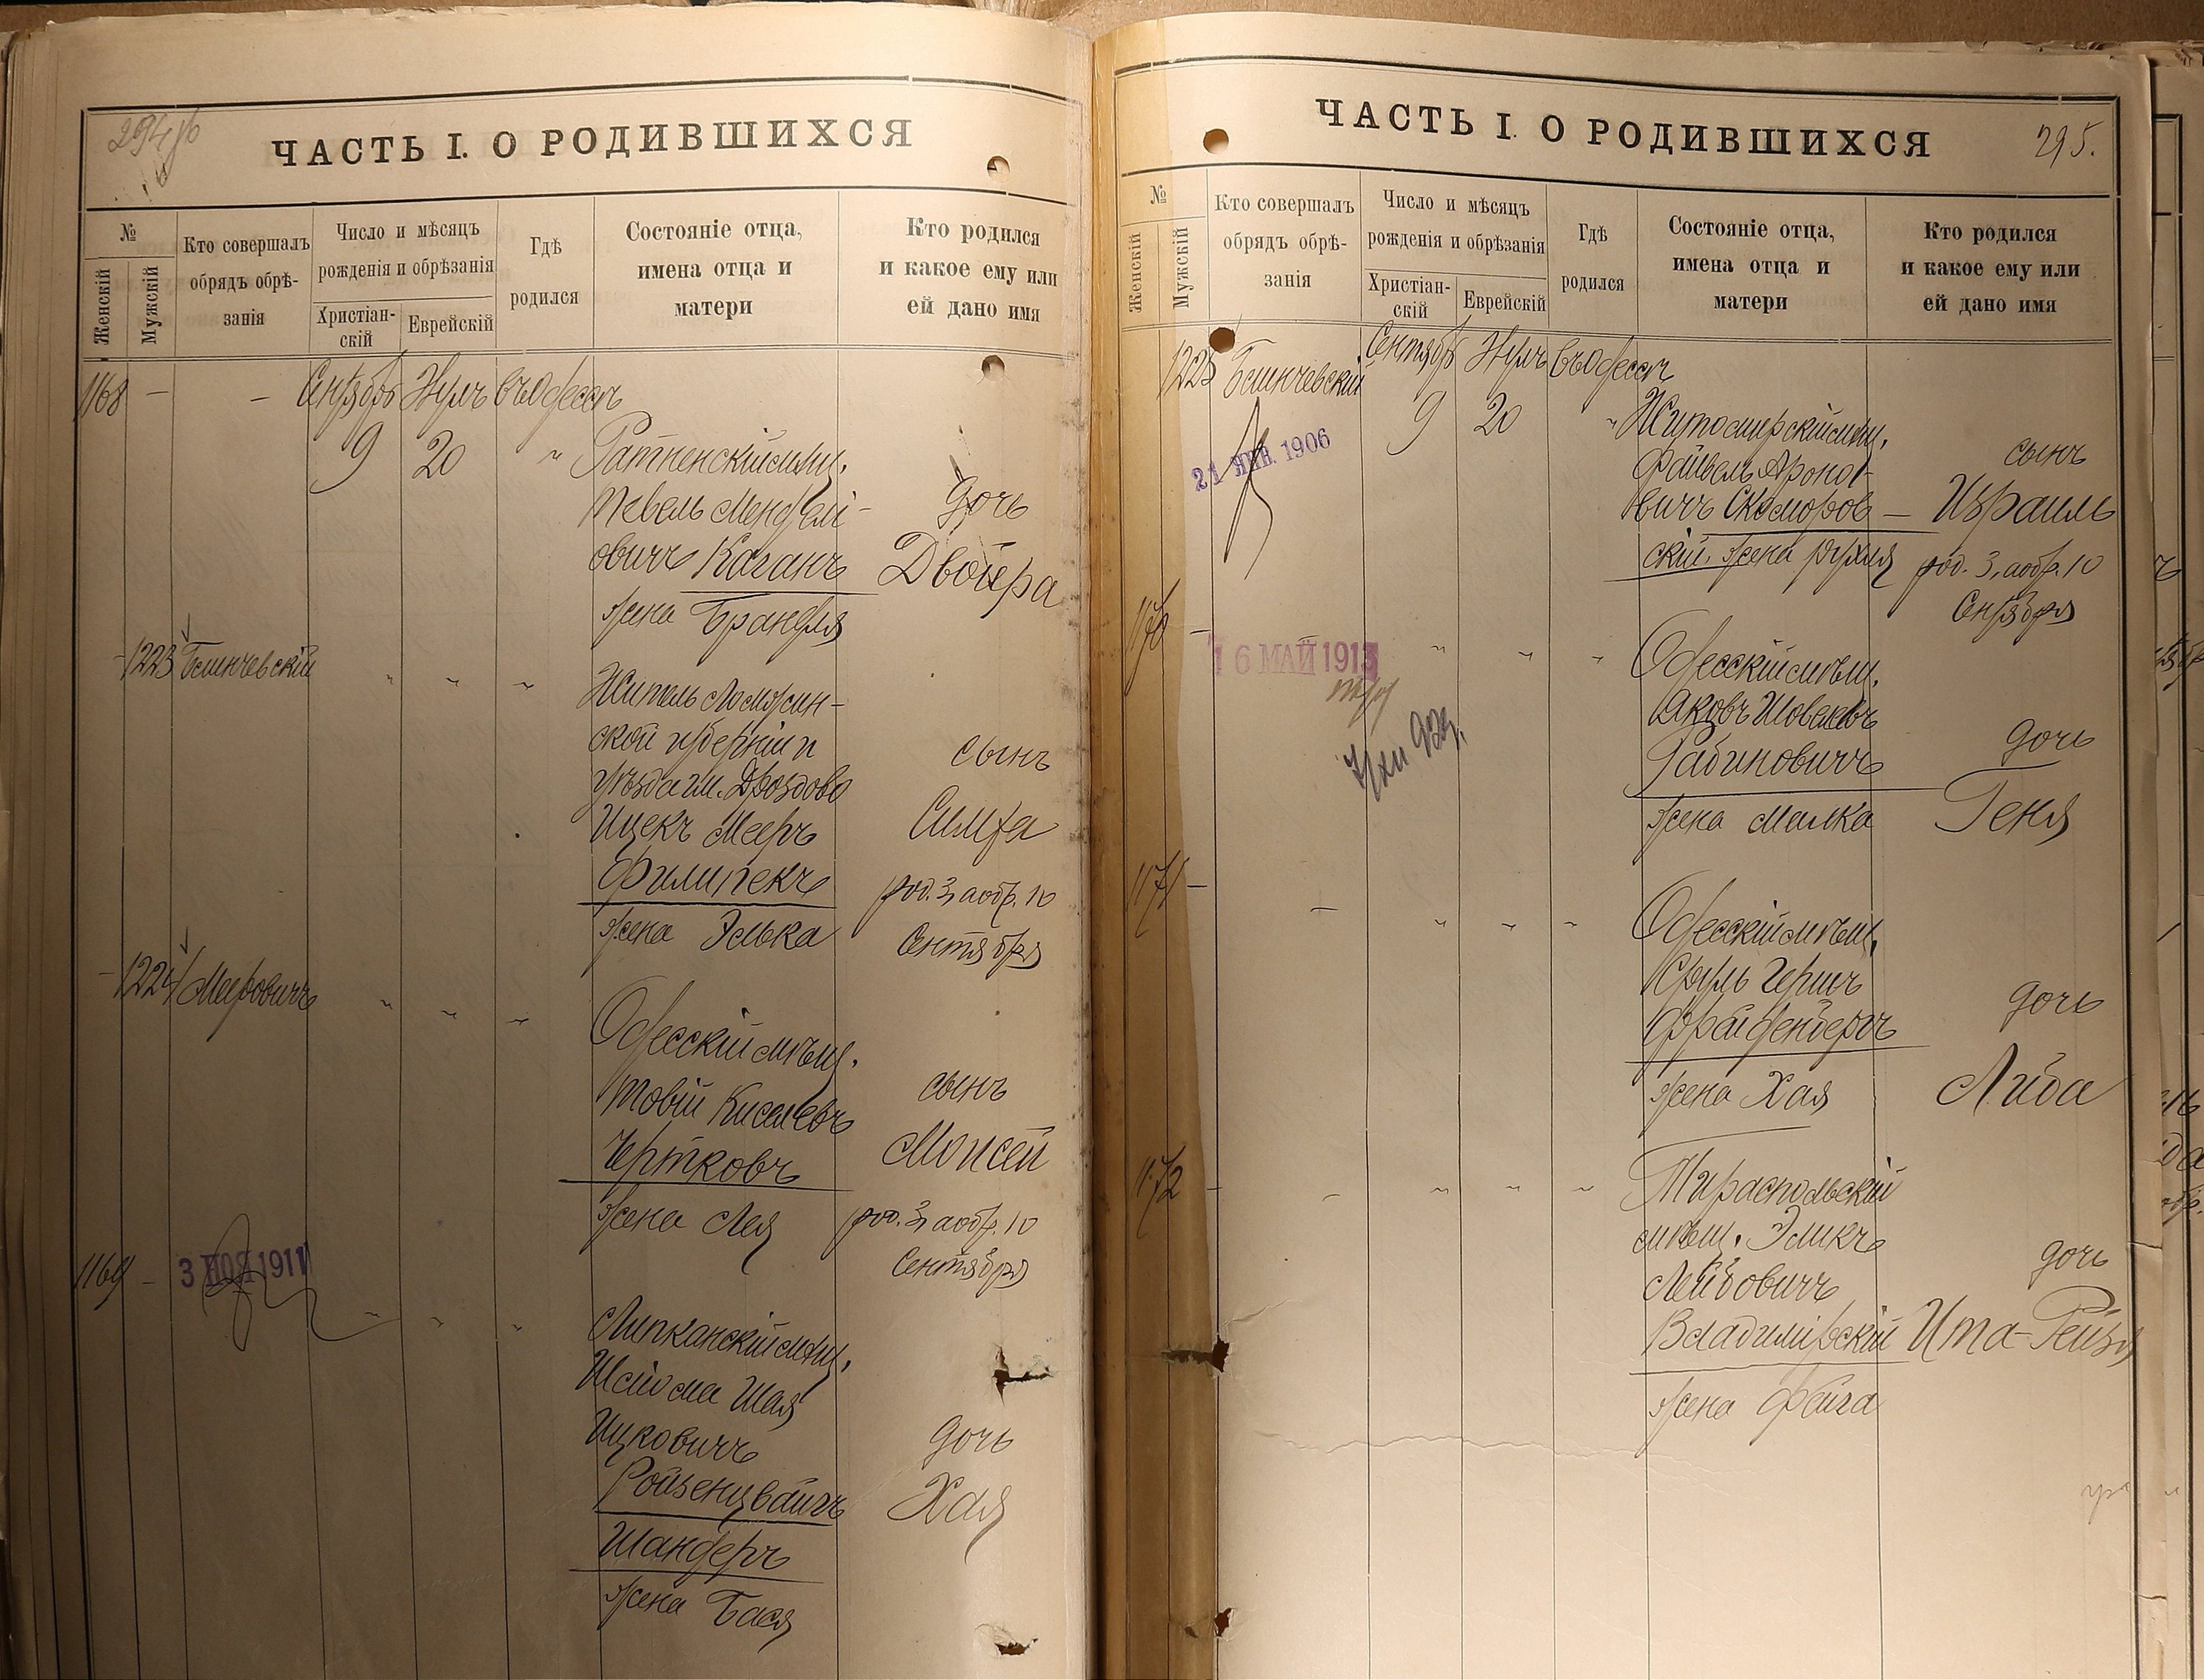 294 об
ЧАСТЬ I. О РОДИВШИХСЯ
№
Женскій
Мужскій
Кто совершалъ
обрядъ обрѣ-
занія
Число и мѣсяцъ
рожденія и обрѣзанія
Христіан-
скій
Еврейскій
Гдѣ
родился
Состояніе отца,
имена отца и
матери
Кто родился
и какое ему или
ей дано имя
1168 — — Сентябрь Элулъ въ Одессѣ
9 20 " Ратненскій мѣщ.
Менделі-
овичъ Каганъ
жена Брандля
дочь
Двойра
1223
Житель Ломжин-
ской губерніи и
уѣзда гм. Дроздово
Ицекъ Мееръ
Филипекъ
жена Элька
сынъ
Симха
род. 3, а обр. 10
Сентября
1224 Меировичъ
Одесскій мѣщ.
Товій Киселевъ
Чертковъ
жена Лея
сынъ
Моисей
род. 3, а обр. 10
Сентября
1169 — 3 НОЯ 1911
Липканскій мѣщ.
Шая
Ицковичъ
Ройзенцвайгъ
Шандеръ
жена Бася
дочь
Хая
295.
ЧАСТЬ I. О РОДИВШИХСЯ
№
Женскій
Мужскій
Кто совершалъ
обрядъ обрѣ-
занія
Число и мѣсяцъ
рожденія и обрѣзанія
Христіан-
скій
Еврейскій
Гдѣ
родился
Состояніе отца,
имена отца и
матери
Кто родился
и какое ему или
ей дано имя
1225 Сентябрь Элулъ въ Одессѣ
9 20 " Житомирскій мѣщ.
21 ЯНВ. 1906
Файвель Ароно-
вичъ Скоморов-
скій. жена Рухля
сынъ
Израиль
род. 3, а обр. 10
Сентября
1170 —
16 МАЙ 1913
Одесскій мѣщ.
Яковъ
Рабиновичъ
жена Малка
дочь
Геня
1171 — —
Одесскій мѣщ.
Сруль Гершъ
Фрайденбергъ
жена Хая
дочь
Люба
1172 — —
Тираспольскій
мѣщ. Эликъ
Лейбовичъ
Владимірскій
жена Файга
дочь
Ита-Рейзя